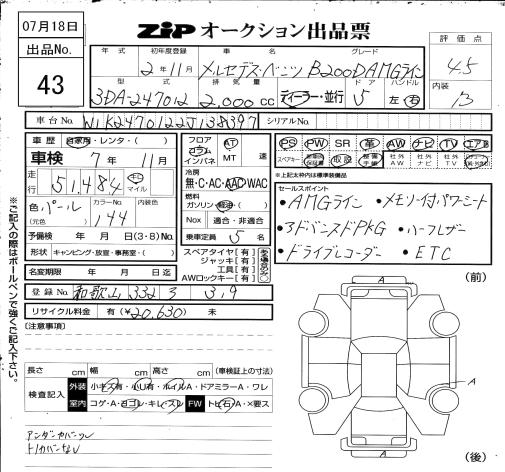 07月18日
ZIP オークション出品票
出品No.
43
評価点
4.5
内装
B
年式 初年度登録 車名 グレード
2年11月 メルセデス・ベンツ B200D AMGライン
型式 排気量 ドア ハンドル
3DA-247012 2,000cc ディーラー・並行 5 左右
車台No. W1K2470122J138397 シリアルNo.
車歴 自家用・レンタ・( )
車検 7年 11月
走行 51,484 キロ マイル
色 パール (元色) カラーNo. 144 内装色
予備検 年 月 日(3・8)No.
形状 キャンピング・放宣・事務室・( )
名変期限 年 月 日迄
フロア コラム インパネ AT MT 速
冷房 無・C・AC・AAC・WAC
燃料 ガソリン・軽油・( )
Nox 適合・非適合
乗車定員 5名
スペアタイヤ[有]
ジャッキ[有]
工具[有]
AWロックキー[有]
PS PW SR 革 AW ナビ TV エアB
スペアキー 取説 社外AW 社外ナビ 社外TV
※上記太わ枠は標準装備品
セールスポイント
・AMGライン ・メモリー付パワーシート
・アドバンスドPKG ・ハーフレザー
・ドライブレコーダー ・ETC
登録No. 和歌山 332 す 3,9
リサイクル料金 有(¥20,630) 未
[注意事項]
長さ cm 幅 cm 高さ cm (車検証上の寸法)
検査記入 外装 小キズ有・小U有・ホイルA・ドアミラーA・ワレ
室内 コゲ・A・ヨゴレ・キレ・スレ FW トビ石・A・X要ス
アンダーカバーワレ
トノカバーなし
(前)
A
A
A
(後)
※ご記入の際はボールペンで強くご記入下さい。